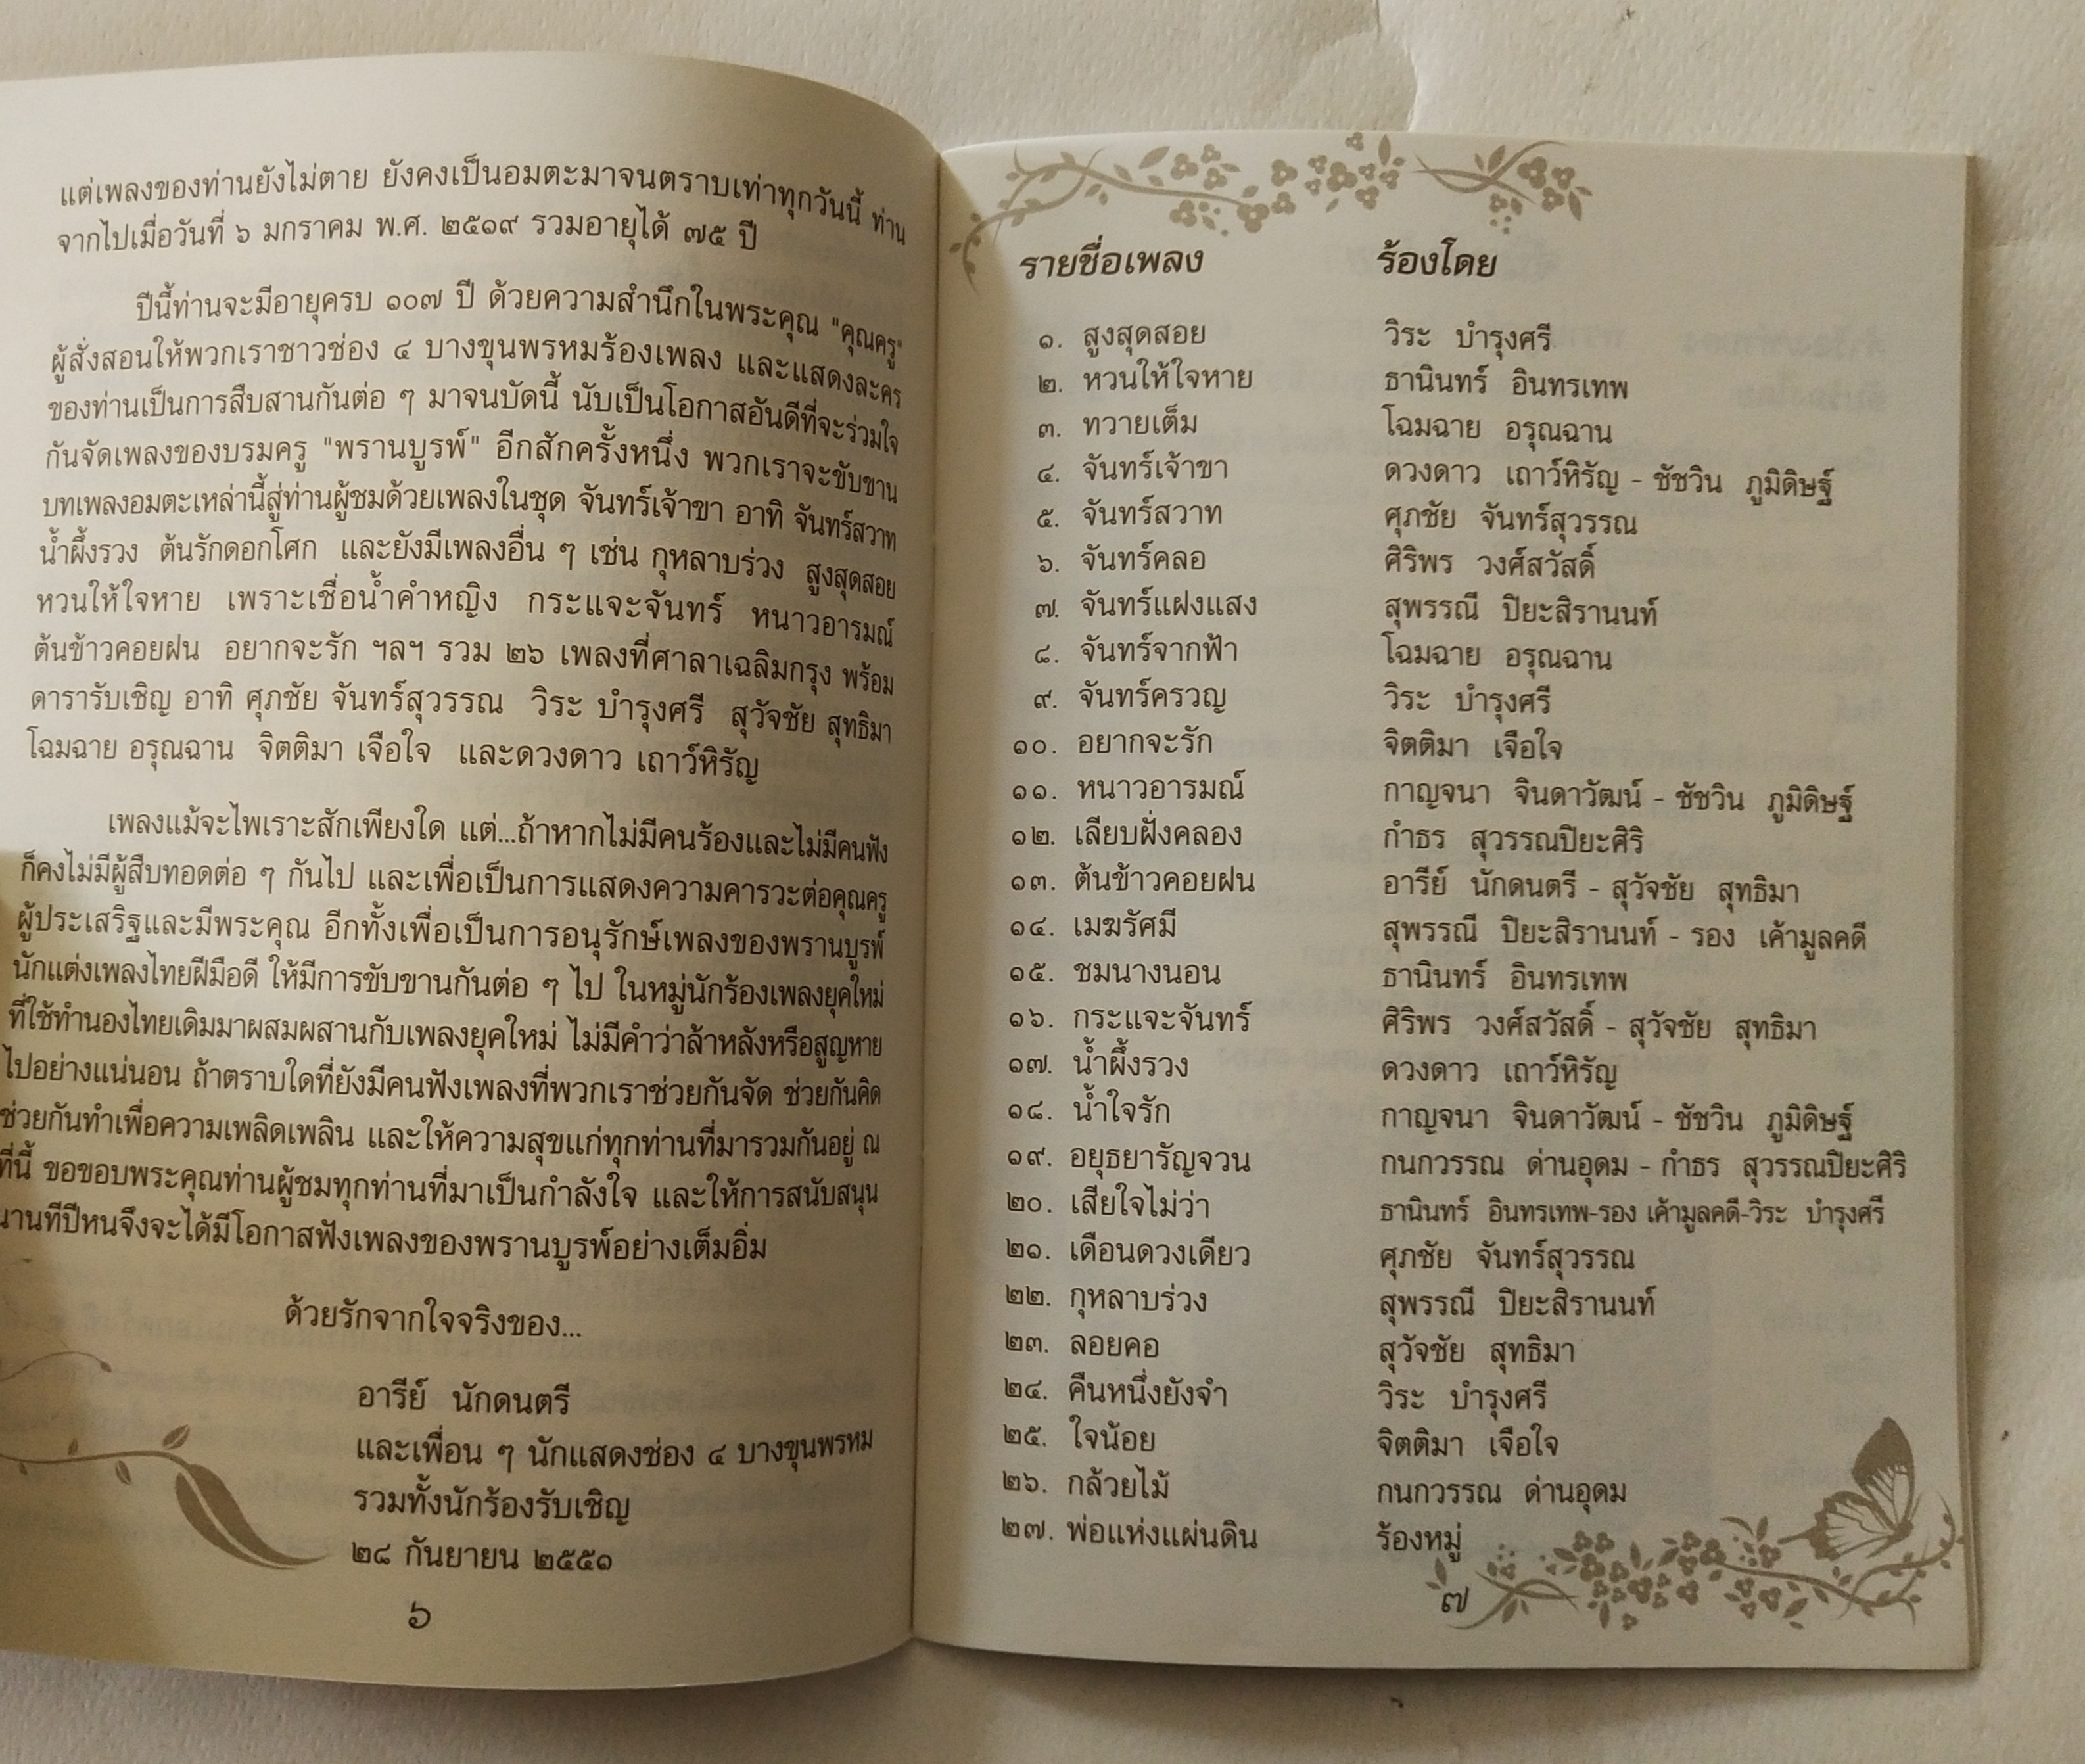 แต่เพลงของท่านยังไม่ตาย ยังคงเป็นอมตะมาจนตราบเท่าทุกวันนี้ ท่าน
จากไปเมื่อวันที่ ๖ มกราคม พ.ศ. ๒๕๑๙ รวมอายุได้ ๗๕ ปี
ปีนี้ท่านจะมีอายุครบ ๑๐๗ ปี ด้วยความสำนึกในพระคุณ "คุณครู"
ผู้สั่งสอนให้พวกเราชาวช่อง ๔ บางขุนพรหมร้องเพลง และแสดงละคร
ของท่านเป็นการสืบสานกันต่อ ๆ มาจนบัดนี้ นับเป็นโอกาสอันดีที่จะร่วมใจ
กันจัดเพลงของบรมครู "พรานบูรพ์" อีกสักครั้งหนึ่ง พวกเราจะขับขาน
บทเพลงอมตะเหล่านี้สู่ท่านผู้ชมด้วยเพลงในชุด จันทร์เจ้าขา อาทิ จันทร์สวาท
น้ำผึ้งรวง ต้นรักดอกโศก และยังมีเพลงอื่น ๆ เช่น กุหลาบร่วง สูงสุดสอย
หวนให้ใจหาย เพราะเชื่อน้ำคำหญิง กระแจะจันทร์ หนาวอารมณ์
ต้นข้าวคอยฝน อยากจะรัก ฯลฯ รวม ๒๖ เพลงที่ศาลาเฉลิมกรุง พร้อม
ดารารับเชิญ อาทิ ศุภชัย จันทร์สุวรรณ วิระ บำรุงศรี สุวัจชัย สุทธิมา
โฉมฉาย อรุณฉาน จิตติมา เจือใจ และดวงดาว เถาว์หิรัญ
เพลงแม้จะไพเราะสักเพียงใด แต่...ถ้าหากไม่มีคนร้องและไม่มีคนฟัง
ก็คงไม่มีผู้สืบทอดต่อ ๆ กันไป และเพื่อเป็นการแสดงความคารวะต่อคุณครู
ผู้ประเสริฐและมีพระคุณ อีกทั้งเพื่อเป็นการอนุรักษ์เพลงของพรานบูรพ์
นักแต่งเพลงไทยฝีมือดี ให้มีการขับขานกันต่อ ๆ ไป ในหมู่นักร้องเพลงยุคใหม่
ที่ใช้ทำนองไทยเดิมมาผสมผสานกับเพลงยุคใหม่ ไม่มีคำว่าล้าหลังหรือสูญหาย
ไปอย่างแน่นอน ถ้าตราบใดที่ยังมีคนฟังเพลงที่พวกเราช่วยกันจัด ช่วยกันคิด
ช่วยกันทำเพื่อความเพลิดเพลิน และให้ความสุขแก่ทุกท่านที่มารวมกันอยู่ ณ
ที่นี้ ขอขอบพระคุณท่านผู้ชมทุกท่านที่มาเป็นกำลังใจ และให้การสนับสนุน
นานทีปีหนจึงจะได้มีโอกาสฟังเพลงของพรานบูรพ์อย่างเต็มอิ่ม
ด้วยรักจากใจจริงของ...
อารีย์ นักดนตรี
และเพื่อน ๆ นักแสดงช่อง ๔ บางขุนพรหม
รวมทั้งนักร้องรับเชิญ
๒๘ กันยายน ๒๕๕๑
๖
รายชื่อเพลง ร้องโดย
๑. สูงสุดสอย วิระ บำรุงศรี
๒. หวนให้ใจหาย ธานินทร์ อินทรเทพ
๓. ทวายเต็ม โฉมฉาย อรุณฉาน
๔. จันทร์เจ้าขา ดวงดาว เถาว์หิรัญ - ชัชวิน ภูมิดิษฐ์
๕. จันทร์สวาท ศุภชัย จันทร์สุวรรณ
๖. จันทร์คลอ ศิริพร วงศ์สวัสดิ์
๗. จันทร์แฝงแสง สุพรรณี ปิยะสิรานนท์
๘. จันทร์จากฟ้า โฉมฉาย อรุณฉาน
๙. จันทร์ครวญ วิระ บำรุงศรี
๑๐. อยากจะรัก จิตติมา เจือใจ
๑๑. หนาวอารมณ์ กาญจนา จินดาวัฒน์ - ชัชวิน ภูมิดิษฐ์
๑๒. เลียบฝั่งคลอง กำธร สุวรรณปิยะศิริ
๑๓. ต้นข้าวคอยฝน อารีย์ นักดนตรี - สุวัจชัย สุทธิมา
๑๔. เมฆรัศมี สุพรรณี ปิยะสิรานนท์ - รอง เค้ามูลคดี
๑๕. ชมนางนอน ธานินทร์ อินทรเทพ
๑๖. กระแจะจันทร์ ศิริพร วงศ์สวัสดิ์ - สุวัจชัย สุทธิมา
๑๗. น้ำผึ้งรวง ดวงดาว เถาว์หิรัญ
๑๘. น้ำใจรัก กาญจนา จินดาวัฒน์ - ชัชวิน ภูมิดิษฐ์
๑๙. อยุธยารัญจวน กนกวรรณ ด่านอุดม - กำธร สุวรรณปิยะศิริ
๒๐. เสียใจไม่ว่า ธานินทร์ อินทรเทพ-รอง เค้ามูลคดี-วิระ บำรุงศรี
๒๑. เดือนดวงเดียว ศุภชัย จันทร์สุวรรณ
๒๒. กุหลาบร่วง สุพรรณี ปิยะสิรานนท์
๒๓. ลอยคอ สุวัจชัย สุทธิมา
๒๔. คืนหนึ่งยังจำ วิระ บำรุงศรี
๒๕. ใจน้อย จิตติมา เจือใจ
๒๖. กล้วยไม้ กนกวรรณ ด่านอุดม
๒๗. พ่อแห่งแผ่นดิน ร้องหมู่
๗